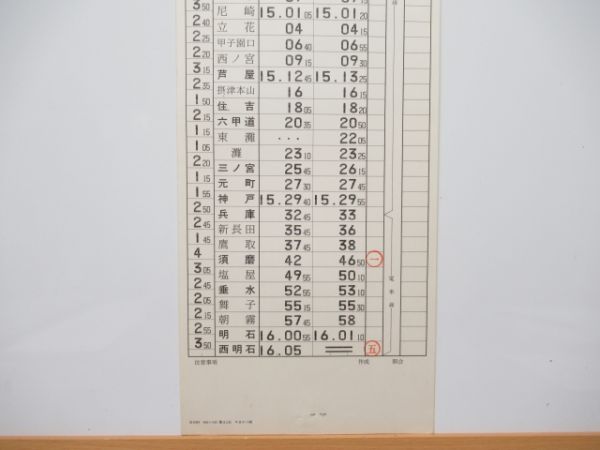 3 50
尼崎 15.01 05 15.01 20
2 40 立花 04 04 15
2 25 甲子園口 06 40 06 55
2 20 西ノ宮 09 15 09 30
3 15 芦屋 15.12 45 15.13 25
2 35 摂津本山 16 16 15
1 50 住吉 18 05 18 20
2 15 六甲道 20 35 20 50
1 15 東灘 ... 22 05
1 05 灘 23 10 23 25
2 20 三ノ宮 25 45 26 15
1 15 元町 27 30 27 45
1 55 神戸 15.29 40 15.29 55
2 50 兵庫 32 45 33
2 45 新長田 35 45 36
1 45 鷹取 37 45 38
4 須磨 42 46 50 一
3 05 塩屋 49 55 50 10
2 45 垂水 52 55 53 10
2 05 舞子 55 15 55 30
2 15 朝霧 57 45 58
2 55 明石 16.00 55 16.01 10
3 50 西明石 16.05 五
電車線
注意事項 作成 照合